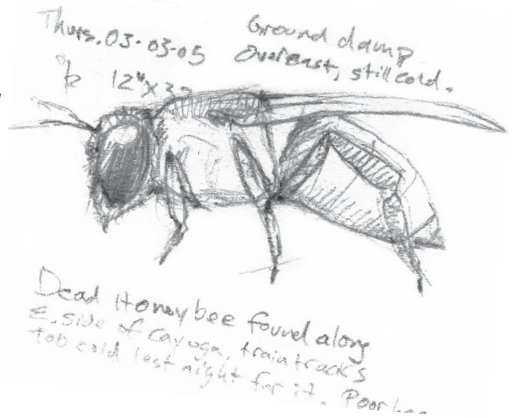 Thurs. 03-03-05
12"x
Ground damp
overcast, still cold.
Dead Honeybee found along
E. side of Cayuga, train tracks
too cold last night for it. Poor